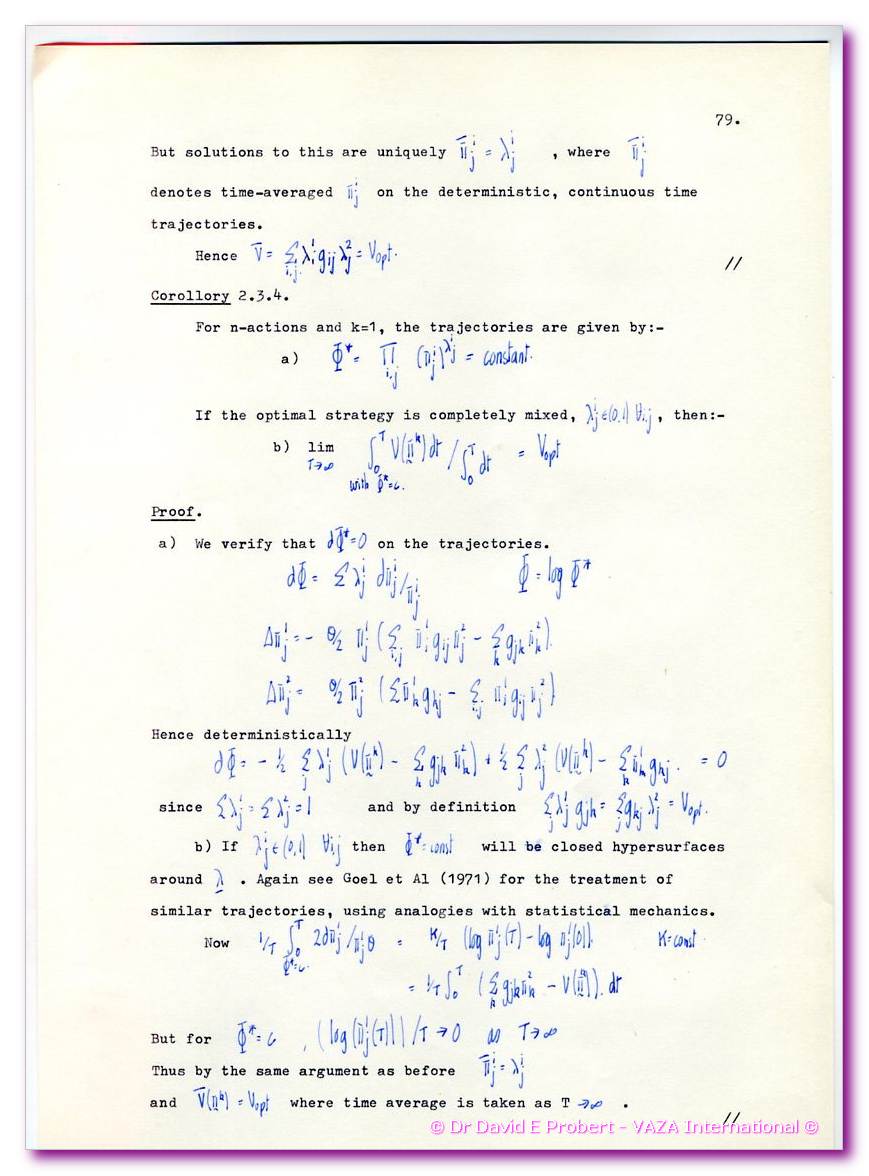 79.
But solutions to this are uniquely π̄ʲᵢ = λʲᵢ , where π̄ʲᵢ
denotes time-averaged πʲᵢ on the deterministic, continuous time
trajectories.
Hence V̄ = Σ_{i,j} λ_i^1 g_ij λ_j^2 = V_opt.
//
Corollory 2.3.4.
For n-actions and k=1, the trajectories are given by:-
a) Φ* = Π_{i,j} (π_j^i)^{λ_j^i} = constant.
If the optimal strategy is completely mixed, λ_j^i ∈ (0,1) ∀i,j , then:-
b) lim T→∞ ∫_0^T V(π^k) dt / ∫_0^T dt = V_opt
with Φ* = c.
Proof.
a) We verify that dΦ* = 0 on the trajectories.
dΦ = Σ λ_j^i dπ_j^i / π_j^i Φ = log Φ*
Δπ_j^1 = - θ/2 π_j^1 ( Σ_{i,j} π_i^1 g_ij π_j^2 - Σ_k g_jk π_k^2 ).
Δπ_j^2 = θ/2 π_j^2 ( Σ π_k^1 g_kj - Σ_{i,j} π_i^1 g_ij π_j^2 )
Hence deterministically
dΦ = - ½ Σ_j λ_j^1 (V(π^k) - Σ_k g_jk π_k^2) + ½ Σ_j λ_j^2 (V(π^k) - Σ_k π_k^1 g_kj . = 0
since Σ λ_j^1 = Σ λ_j^2 = 1 and by definition Σ_j λ_j^1 g_jk = Σ_j g_kj λ_j^2 = V_opt.
b) If λ_j^i ∈ (0,1) ∀i,j then Φ* = const will be closed hypersurfaces
around λ . Again see Goel et Al (1971) for the treatment of
similar trajectories, using analogies with statistical mechanics.
Now 1/T ∫_0^T 2dπ_j^1 / π_j^1 θ = K/T (log π_j^1(T) - log π_j^1(0)). K = const.
Φ* = c.
= 1/T ∫_0^T ( Σ_k g_jk π_k^2 - V(π^k)). dt
But for Φ* = c , | log(π_j^i(T)) | / T → 0 as T→∞
Thus by the same argument as before π̄_j^i = λ_j^i
and V̄(π^k) = V_opt where time average is taken as T →∞ .
//
© Dr David E Probert – VAZA International ©